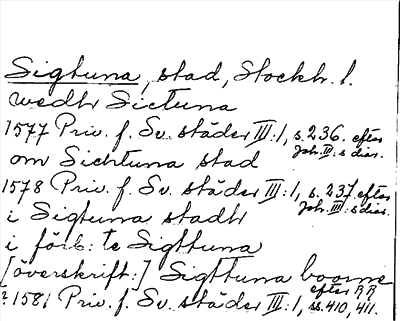 Sigtuna, stad, Stockh. l.
wedh Sictuna
1577 Priv. f. Sv. städer III:1, s. 236. efter
Joh. III:s diar.
om Sichtuna stad
1578 Priv. f. Sv. städer III:1, s. 237. efter
Joh. III:s diar.
i Sigtuna stadh
i förb: te Sigttuna
[överskrift:] Sigttuna boorne
efter RR
? 1581 Priv. f. Sv. städer III:1, ss. 410, 411.